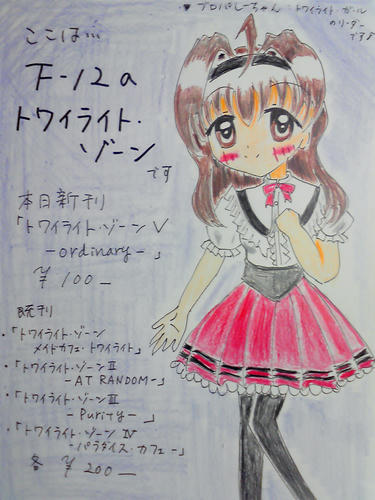 ♥ プロパしーちゃん トワイライト・ガール
のリーダー
です♪
ここは…
下-12a
トワイライト・
ゾーン
です
本日新刊
「トワイライト・ゾーンⅤ
-ordinary-」
¥100-
既刊
・「トワイライト・ゾーン
メイドカフェ・トワイライト」
・「トワイライト・ゾーンⅡ
-AT RANDOM-」
・「トワイライト・ゾーンⅢ
-Purity-」
・「トワイライト・ゾーンⅣ
-パラダイス・カフェ-」
各 ¥200-